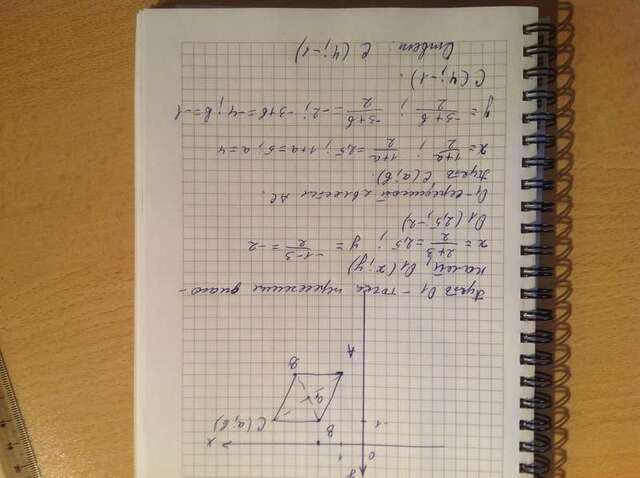 y
0 1 x
-1 B C (а; в)
O₁
A B
Пусть O₁ - точка пересечения диаго-
налей, O₁ (x; y)
x = (2+3)/2 = 2,5 ; y = (-1-3)/2 = -2
O₁ (2,5; -2)
O₁ - серединой является AC.
Пусть C(а; в).
x = (1+а)/2 ; (1+а)/2 = 2,5 ; 1+а=5 ; а=4
y = (-3+в)/2 ; (-3+в)/2 = -2 ; -3+в=-4 ; в=-1
C (4; -1).
Ответ: C (4; -1)